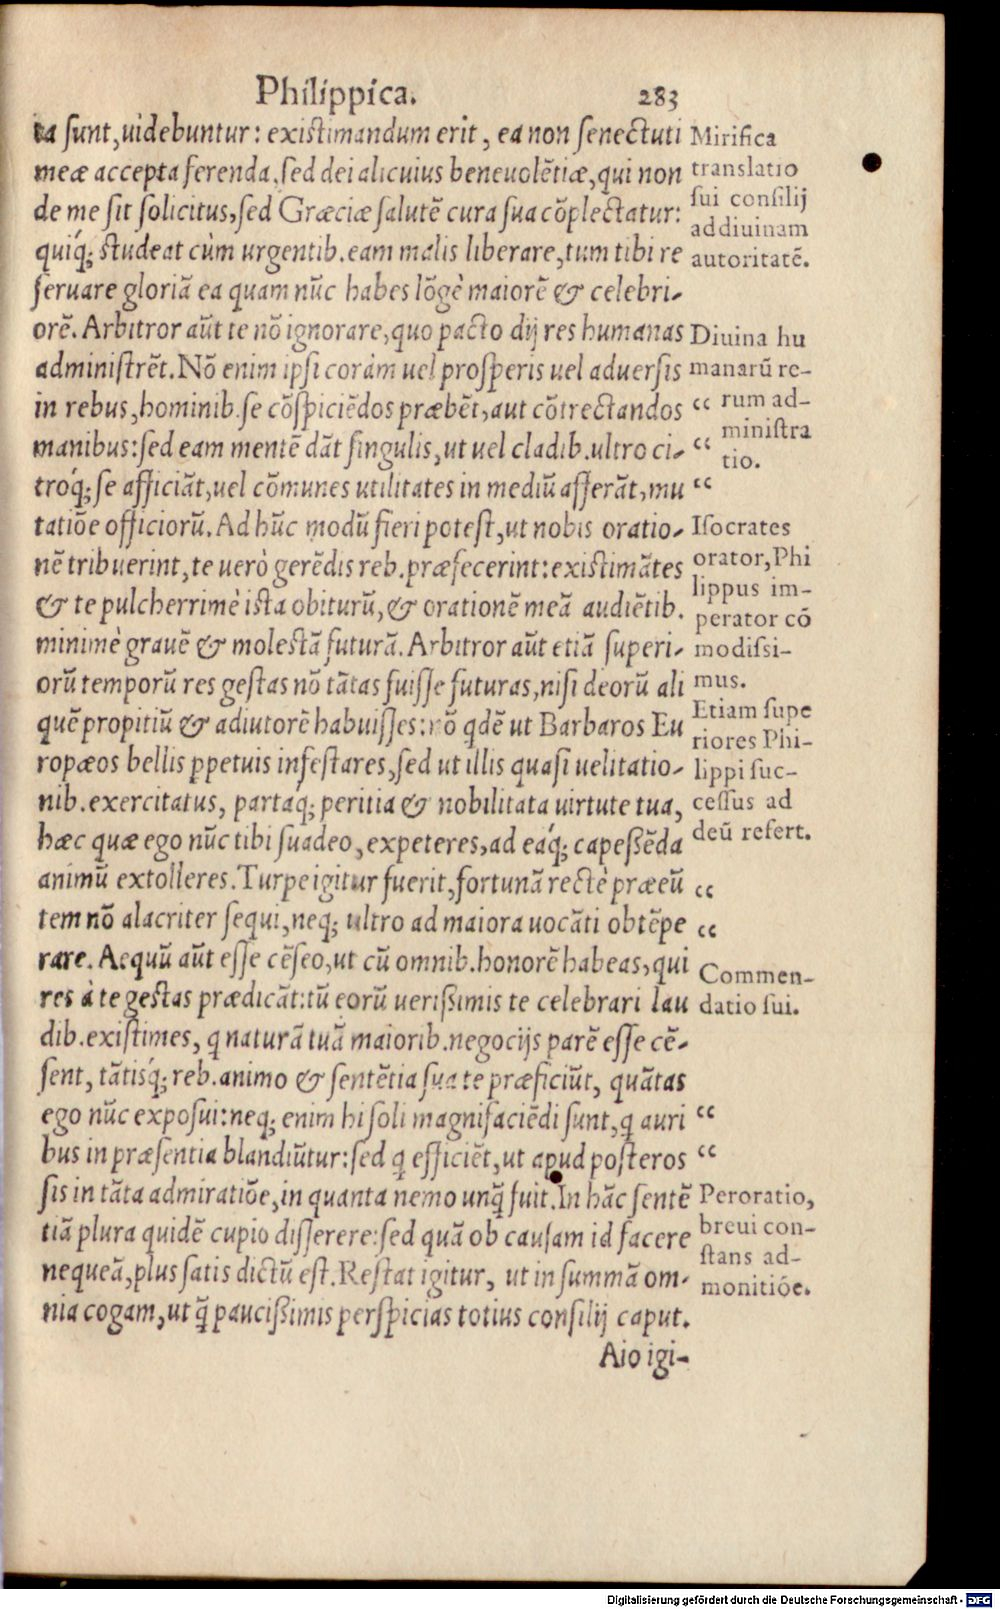 Philippica. 283
ta sunt, uidebuntur: existimandum erit, ea non senectuti
meæ accepta ferenda, sed dei alicuius beneuolẽtiæ, qui non
de me sit solicitus, sed Græciæ salutẽ cura sua cõplectatur:
quiq́; studeat cùm urgentib. eam malis liberare, tum tibi re
seruare gloriã ea quam nũc habes lõgè maiorẽ & celebri-
orẽ. Arbitror aũt te nõ ignorare, quo pacto dij res humanas
administrẽt. Nõ enim ipsi coràm uel prosperis uel aduersis
in rebus, hominib. se cõspiciẽdos præbẽt, aut cõtrectandos
manibus: sed eam mentẽ dãt singulis, ut uel cladib. ultro ci-
troq́; se afficiãt, uel cõmunes utilitates in mediũ afferãt, mu
tatiõe officiorũ. Ad hũc modũ fieri potest, ut nobis oratio-
nẽ tribuerint, te uerò gerẽdis reb. præfecerint: existimãtes
& te pulcherrimè ista obiturũ, & orationẽ meã audiẽtib.
minimè grauẽ & molestã futurã. Arbitror aũt etiã superi-
orũ temporũ res gestas nõ tãtas fuisse futuras, nisi deorũ ali
quẽ propitiũ & adiutorẽ habuisses: nõ qdẽ ut Barbaros Eu
ropæos bellis ꝑpetuis infestares, sed ut illis quasi uelitatio-
nib. exercitatus, partaq́; peritia & nobilitata uirtute tua,
hæc quæ ego nũc tibi suadeo, expeteres, ad eaq́; capeßẽda
animũ extolleres. Turpe igitur fuerit, fortunã rectè præeũ
tem nõ alacriter sequi, neq; ultro ad maiora uocãti obtẽpe
rare. Aequũ aũt esse cẽseo, ut cũ omnib. honorẽ habeas, qui
res à te gestas prædicãt: tũ eorũ uerißimis te celebrari lau
dib. existimes, q naturã tuã maiorib. negocijs parẽ esse cẽ-
sent, tãtisq́; reb. animo & sentẽtia sua te præficiũt, quãtas
ego nũc exposui: neq; enim hi soli magnifaciẽdi sunt, q auri
bus in præsentia blandiũtur: sed q efficiẽt, ut apud posteros
sis in tãta admiratiõe, in quanta nemo unq̃ fuit. In hãc sentẽ
tiã plura quidẽ cupio disserere: sed quã ob causam id facere
nequeã, plus satis dictũ est. Restat igitur, ut in summã om-
nia cogam, ut q̃ paucißimis perspicias totius consilij caput.
Aio igi-
Mirifica
translatio
sui consilij
ad diuinam
autoritatẽ.
Diuina hu
manarũ re-
“ rum ad-
ministra
“ tio.
“
Isocrates
orator, Phi
lippus im-
perator cõ
modissi-
mus.
Etiam supe
riores Phi-
lippi suc-
cessus ad
deũ refert.
“
“
Commen-
datio sui.
“
“
Peroratio,
breui con-
stans ad-
monitiõe.
Digitalisierung gefördert durch die Deutsche Forschungsgemeinschaft - DFG